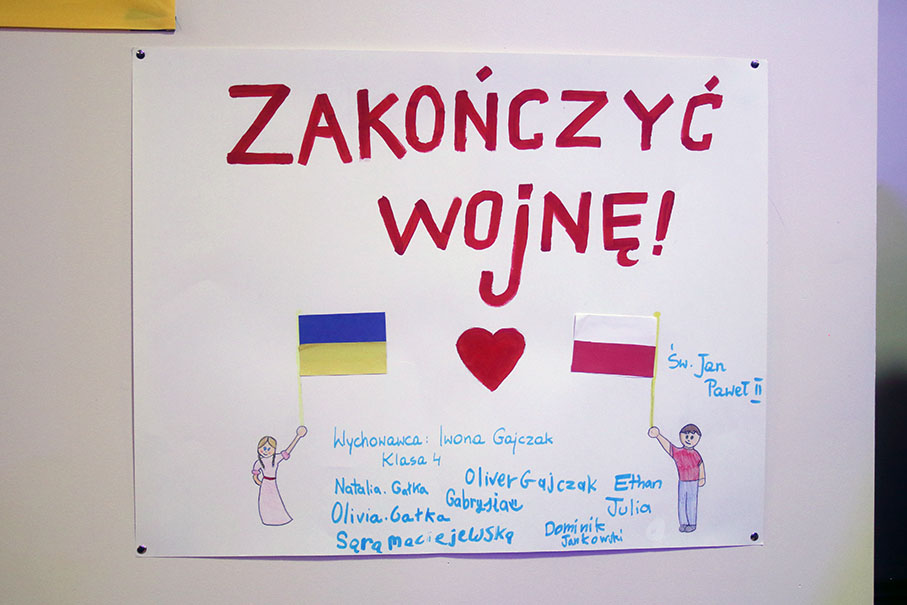 ZAKOŃCZYĆ
WOJNĘ!
Św. Jan
Paweł II
Wychowawca: Iwona Gajczak
Klasa 4
Natalia. Gałka
Oliver Gajczak
Ethan
Gabrysiaw
Julia
Olivia. Gałka
Dominik
Jankowski
Sara Maciejewska